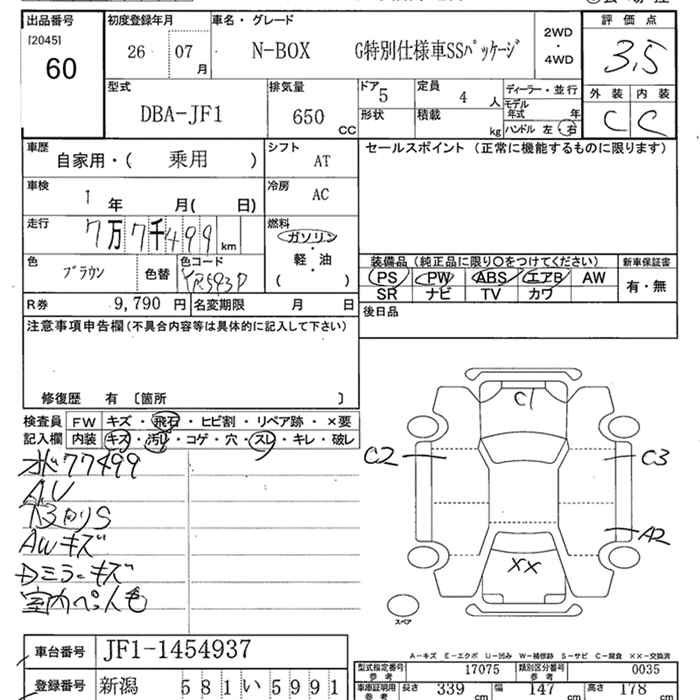 出品番号 初度登録年月 車名・グレード 評価点
[2045] 60
26 07 月 N-BOX G特別仕様車SSパッケージ 2WD・4WD 3.5
型式 DBA-JF1 排気量 650 CC
ドア 5 定員 4 人 形状 積載 kg
ディーラー・並行 モデル年式 年 ハンドル 左・右
外装 内装
C C
車歴 自家用・( 乗用 ) シフト AT
セールスポイント (正常に機能するものに限ります)
車検 1 年 月( 日) 冷房 AC
走行 7万7千499 km 燃料 ガソリン 軽・油 ( )
色 ブラウン 色替 色コード YR593P
装備品 (純正品に限り○をつけてください) 新車保証書
PS PW ABS エアB AW 有・無
SR ナビ TV カワ
R券 9,790 円 名変期限 月 日
後日品
注意事項申告欄 (不具合内容等は具体的に記入して下さい)
修復歴 有 〔箇所 〕
検査員 FW キズ・飛石・ヒビ割・リペア跡・×要
記入欄 内装 キズ・汚れ・コゲ・穴・スレ・キレ・破レ
77499
AU
下回りS
AWキズ
Dミラーキズ
C1
C2 C3
A2
XX
スペア
A-キズ E-エクボ U-凹み W-補修跡 S-サビ C-腐食 XX-交換済
車台番号 JF1-1454937
型式指定番号 参考 17075 類別区分番号 参考 0035
登録番号 新潟 581 い 5991
車庫証明用 参考 長さ 339 cm 幅 147 cm 高さ 178 cm